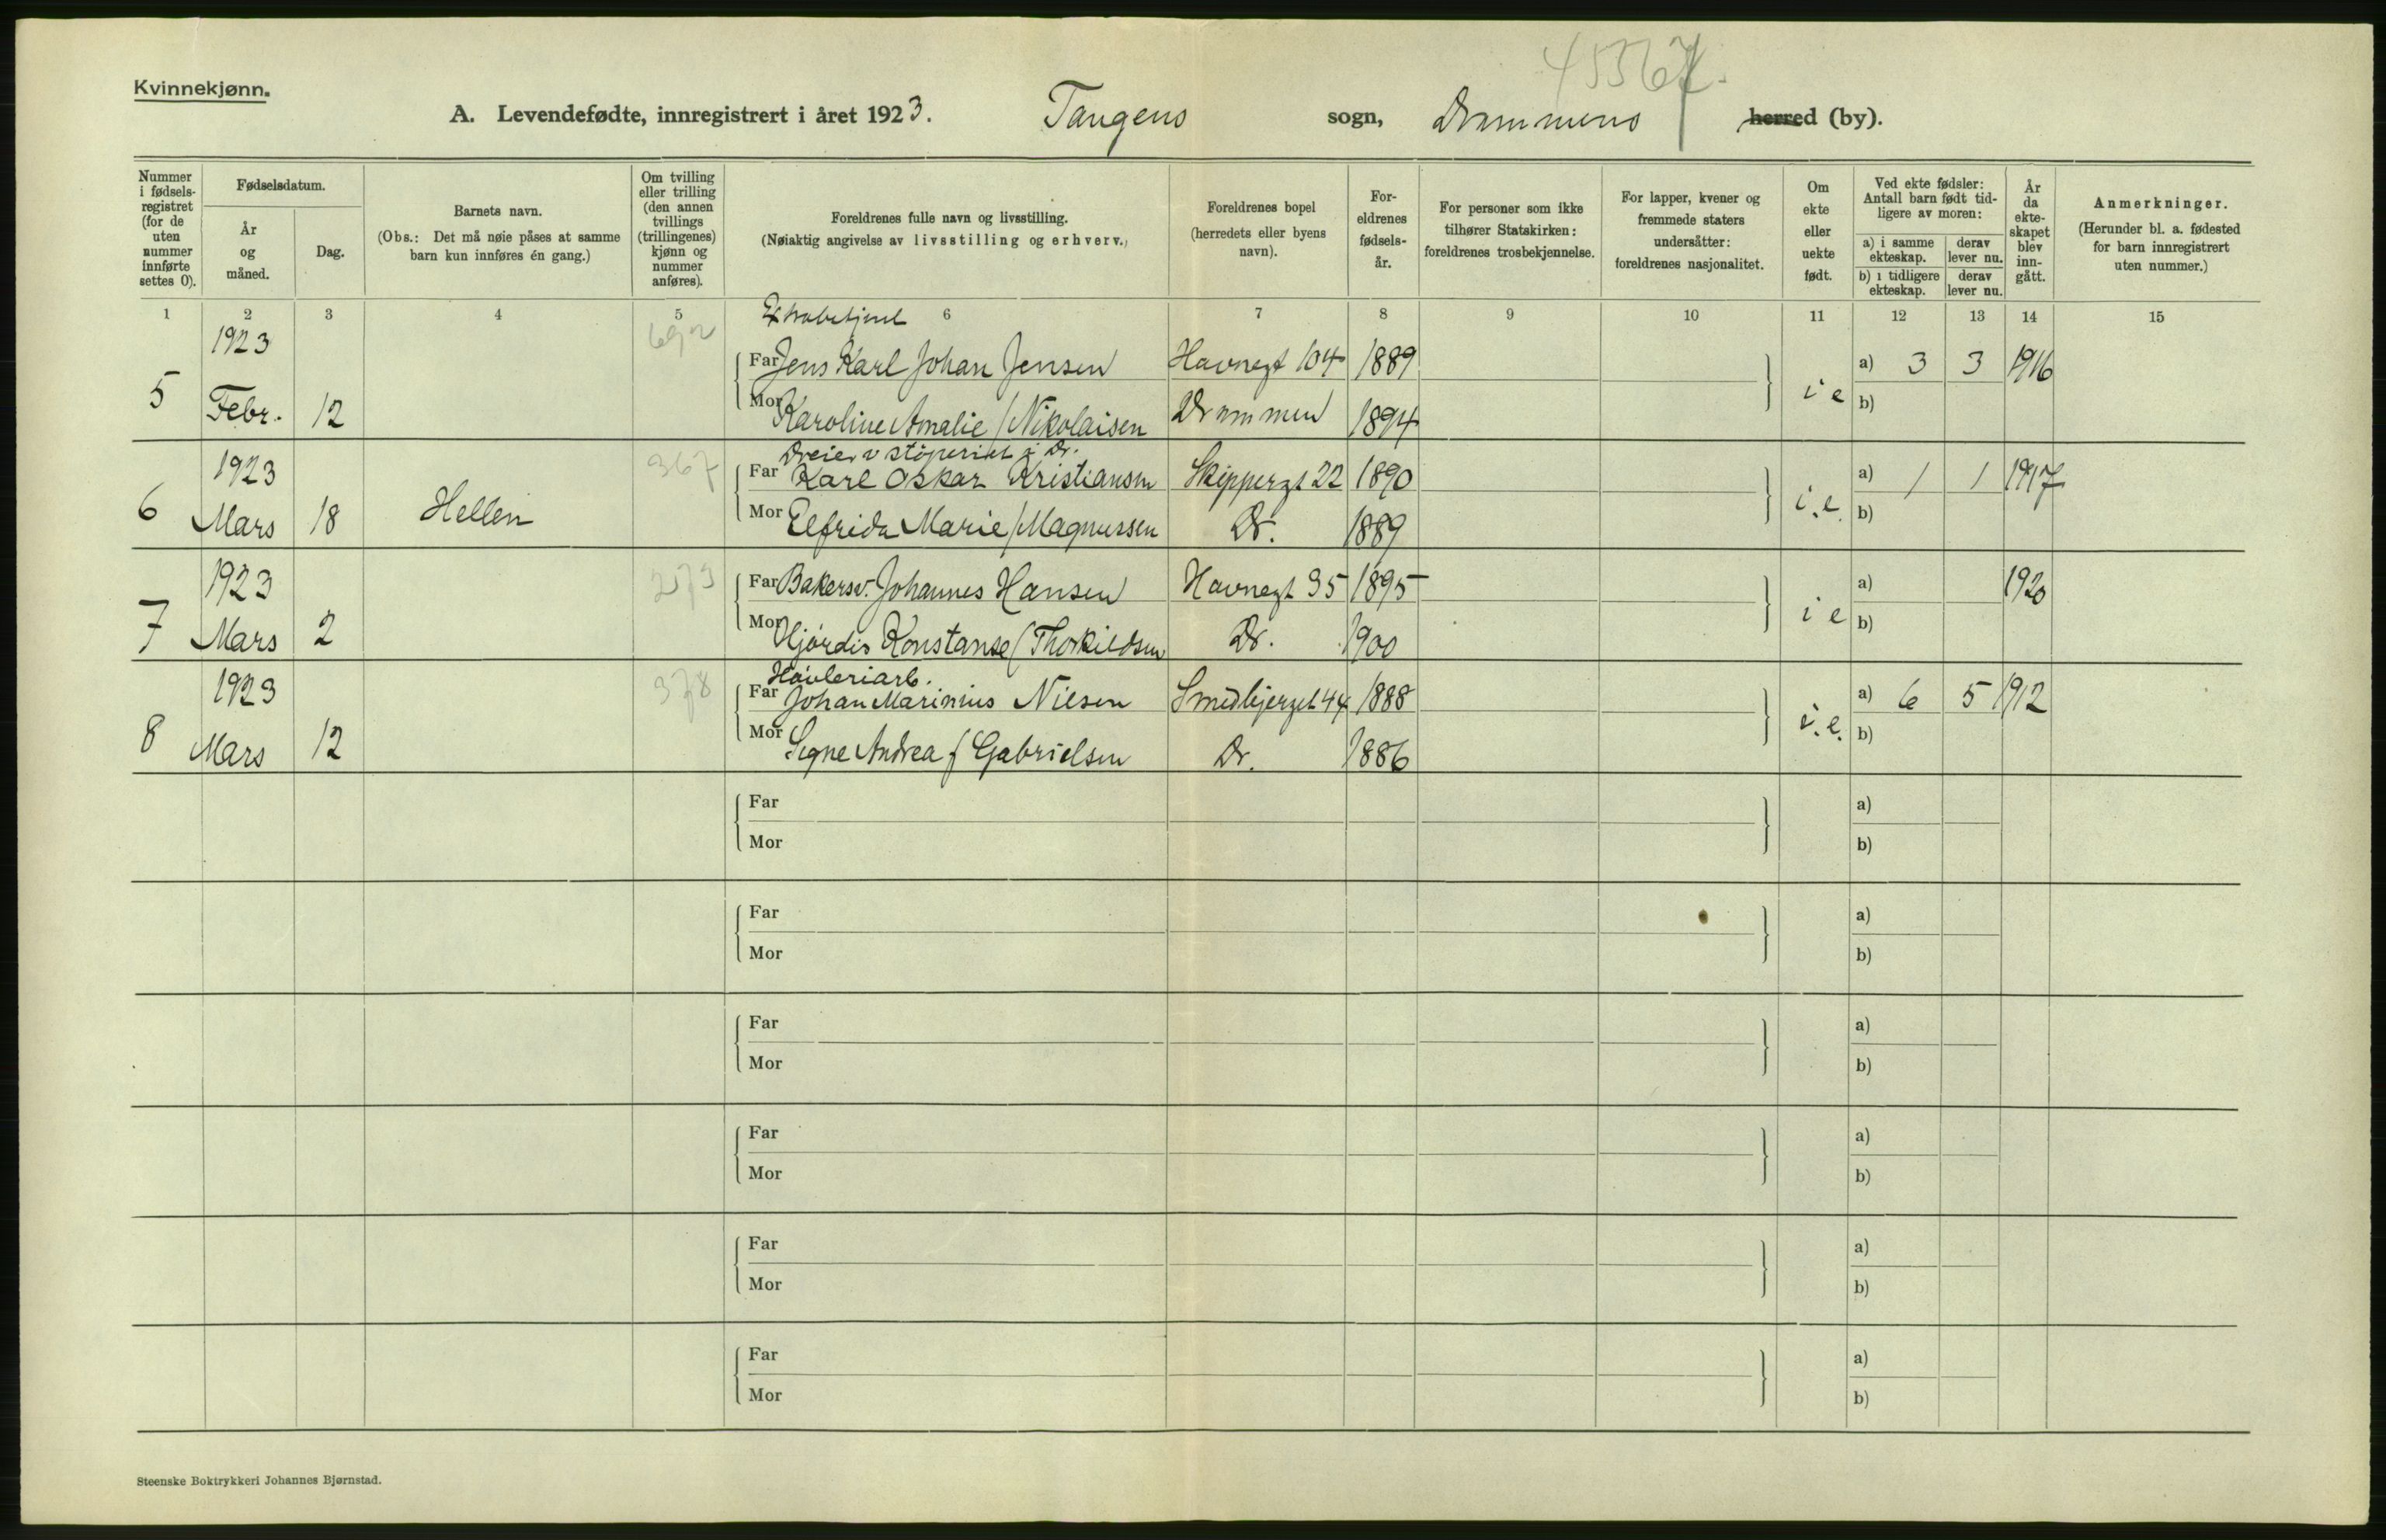 Kvinnekjønn.
A. Levendefødte, innregistrert i året 1923. Tangens sogn, Drammens herred (by).
Nummer i fødsels-registret (for de uten nummer innførte settes 0).
Fødselsdatum.
År og måned.
Dag.
Barnets navn.
(Obs.: Det må nøie påses at samme barn kun innføres én gang.)
Om tvilling eller trilling (den annen tvillings (trillingenes) kjønn og nummer anføres).
Foreldrenes fulle navn og livsstilling.
(Nøiaktig angivelse av livsstilling og erhverv.)
Foreldrenes bopel (herredets eller byens navn).
For-eldrenes fødsels-år.
For personer som ikke tilhører Statskirken: foreldrenes trosbekjennelse.
For lapper, kvener og fremmede staters undersåtter: foreldrenes nasjonalitet.
Om ekte eller uekte født.
Ved ekte fødsler: Antall barn født tid-ligere av moren:
a) i samme ekteskap.
derav lever nu.
b) i tidligere ekteskap.
derav lever nu.
År da ekte-skapet blev inn-gått.
Anmerkninger.
(Herunder bl. a. fødested for barn innregistrert uten nummer.)
1 2 3 4 5 6 7 8 9 10 11 12 13 14 15
1923
Far Jens Karl Johan Jensen Havnegt 104 1889 a) 3 3 1916
5 Febr. 12 i e b)
Mor Karoline Amalie f Nikolaisen Drammen 1894
1923 367 Dreier v støperiet i Dr.
Far Karl Oskar Kristiansen Skippergt 22 1890 a) 1 1 1917
6 Mars 18 Hellen i.e. b)
Mor Elfrida Marie f Magnussen Dr. 1889
1923 Far Bakersv. Johannes Hansen Havnegt 35 1895 a) 1920
7 Mars 2 i e b)
Mor Hjørdis Konstanse f Thorkildsen Dr. 1900
1923 378 Høvleriarb.
Far Johan Marinius Nilsen Smedbjerget 44 1888 a) 6 5 1912
8 Mars 12 i.e. b)
Mor Signe Andrea f Gabrielsen Dr. 1886
Far a)
Mor b)
Far a)
Mor b)
Far a)
Mor b)
Far a)
Mor b)
Far a)
Mor b)
Far a)
Mor b)
Steenske Boktrykkeri Johannes Bjørnstad.